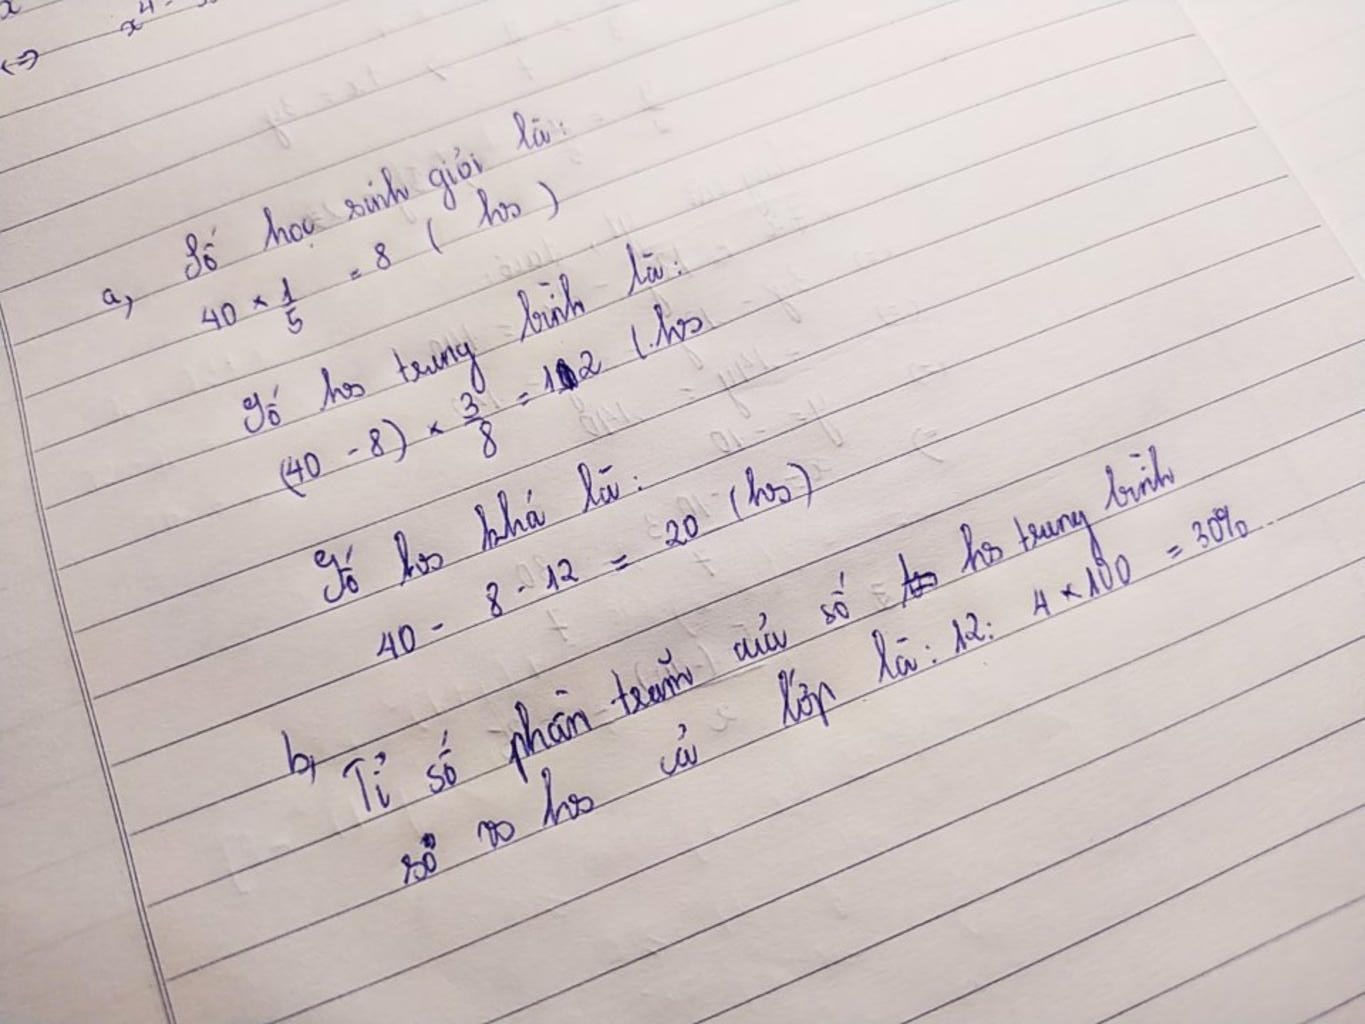 x
<=> x⁴
a, Số học sinh giỏi là:
40 × 1/5 = 8 ( hs )
Số hs trung bình là:
(40 - 8) × 3/8 = 12 ( hs
Số hs khá là:
40 - 8 - 12 = 20 (hs)
b, Tỉ số phần trăm của số hs trung bình
số hs cả lớp là: 12: 4 × 100 = 30%